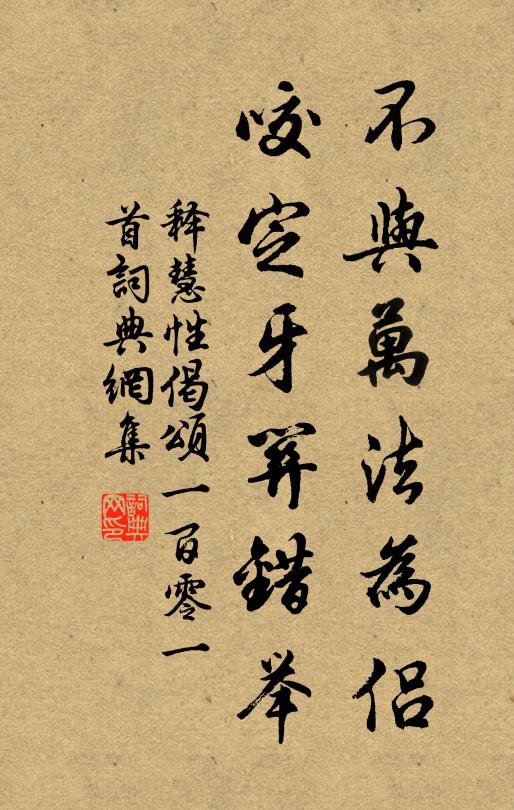 不與萬法為侣
咬定牙関錯举
释慧性偈頌一百零一
首詞典網集
詞典网印